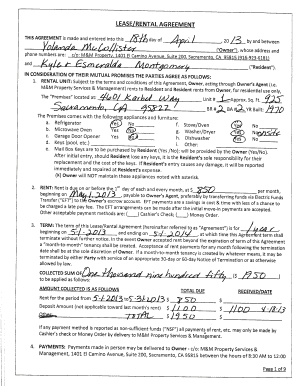 LEASE/RENTAL AGREEMENT
THIS AGREEMENT is made and entered into this 18th day of April 2013 by and between
Yolanda McCollister ("Owner"), whose address and
phone numbers are: c/o M&M Property, 1401 El Camino Avenue, Suite 200, Sacramento, CA 95815
and Kyler Esmeralda Montgomery ("Resident")
IN CONSIDERATION OF THEIR MUTUAL PROMISES THE PARTIES AGREE AS FOLLOWS:
1. RENTAL UNIT: Subject to the terms and conditions of this Agreement, Owner acting through Owner's Agent (i.e.
M&M Property Management Services) rents to Resident and Resident rents from Owner, for residential use only,
The "Premises" located at: 4601 Karbet Way Unit # 1 Approx. Sq. Ft. 925
Sacramento, CA 95822 BR 2 BA 2 YR Built 1970
The Premises comes with the following appliances and furniture:
a. Refrigerator Yes No f. Stove/Oven Yes No
b. Microwave Oven Yes No g. Washer/Dryer Yes No onsite
c. Garage Door Opener Yes No h. Dishwasher Yes No
d. Keys (pool, etc.) i. Other:
e. Mail Box keys are to be purchased by Resident (Yes) will be provided by the Owner (No).
After initial entry, should Resident lose any keys, it is the Resident's sole responsibility for their
replacement and the cost of the keys. If Resident's entry causes any damage, it will be required
immediately and repaired at Resident's expense.
(X) Owner will NOT maintain these appliances noted with asterisk.
2. RENT: Rent is due on or before the 1st day of each and every month, at $ 850 per month,
beginning on May 1, 2013, payable to Owner's Agent, preferably by transferring funds via Electric Funds
Transfer ("EFT") to UM Owner's escrow account. EFT payments are a savings in cost & time with less of a chance to
be charged a late pay fee. The EFT arrangements can be made after the initial move-in payments are accepted.
Other acceptable payment methods are: Cashier's Check Money Order.
3. TERM: The term of this Lease/Rental Agreement (hereinafter referred to as "Agreement") is for 1 year
beginning on 5-1-2013 and ending on 5-1-2014, at which time this Agreement shall
terminate without further notice.
COLLECTED SUM OF One thousand nine hundred fifty is $ 1950
to be applied as follows:
AMOUNT COLLECTED IS AS FOLLOWS TOTAL DUE RECEIVED/DATE
Rent for the period from 5-1-2013 - 5-31-2013 $ 850 $
Deposit Amount (not applicable toward last month's rent) $ 1100 $ 1100 4-18-13
TOTAL $ 1950 $
If any payment method is reported as non-sufficient funds "NSF" all payments of rent, etc. may only be made by
Cashier's check or Money Order by delivery to M&M Property Services & Management.
4. PAYMENTS: Payments made in person may be delivered to Owner - c/o: M&M Property Services &
Management, 1401 El Camino Avenue, Suite 200, Sacramento, CA 95815 between the hours of 8:30 AM to 12:00
Page 1 of 9